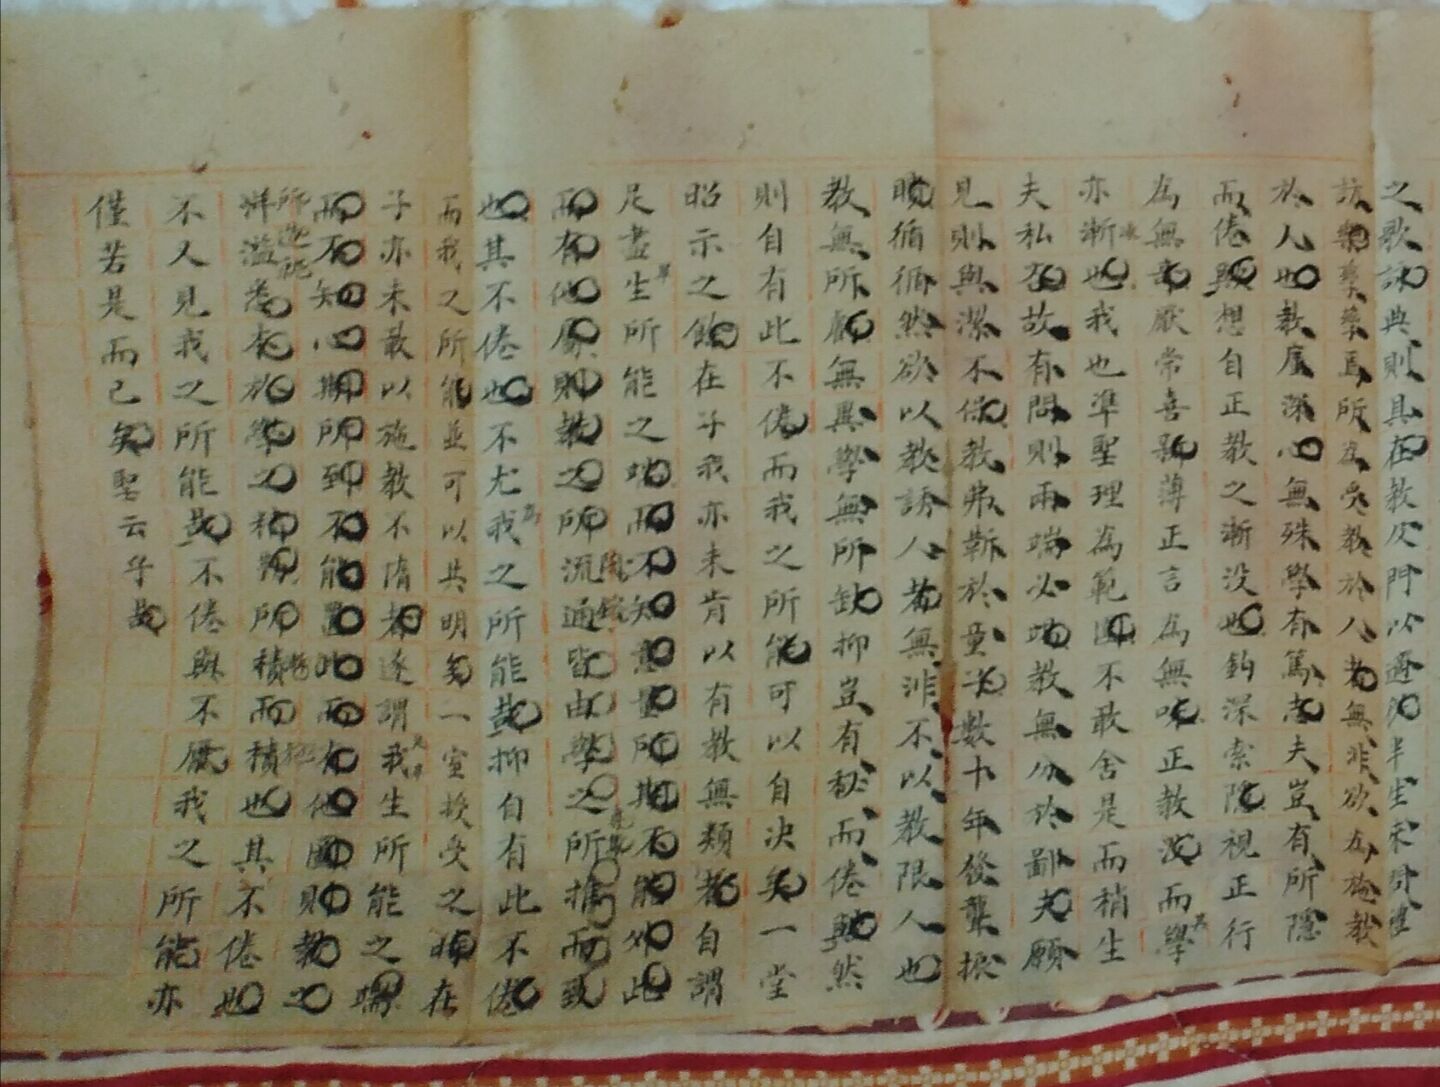 之歌詠典則具在教人門以適
訪樂羣羣焉所為受教於人者無非欲為施教
於人也教庠深心無殊學有篤志夫豈有所隱
而倦歟想自正教之漸沒也鈎深索隱視正行
為無奇厭常喜新薄正言為無味正教沒而學
亦漸也我也準聖理為範圍不敢舍是而稍生
夫私存故有問則兩端必竭教無分於鄙夫願
見則與潔不保教弗靳於童子數十年發聾振
聵循循然欲以教誘人者無非不以教限人也
教無所厭無異學無所缺抑豈有秘而倦歟然
則自有此不倦而我之所能可以自決矣一堂
昭示之餘在子我亦未肯以有教無類者自謂
足盡生所能之端而不知意量所期不能外此
而有他屬則教之所流通皆由學之所推而致
也其不倦也不尤我之所能哉抑自有此不倦
而我之所能並可以共明矣一室授受之時在
子亦未敢以施教不惰者遂謂我生所能之端
而不知心期所到不能置此而有他圖則教之
洋溢悉本於學之積所積而積也其不倦也
不又見我之所能哉不倦與不厭我之所能亦
僅若是而已矣聖云乎哉